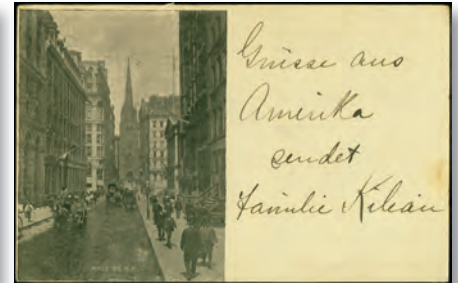 WALL ST. N.Y.
Grüsse aus
Amerika
sendet
Familie Kilian